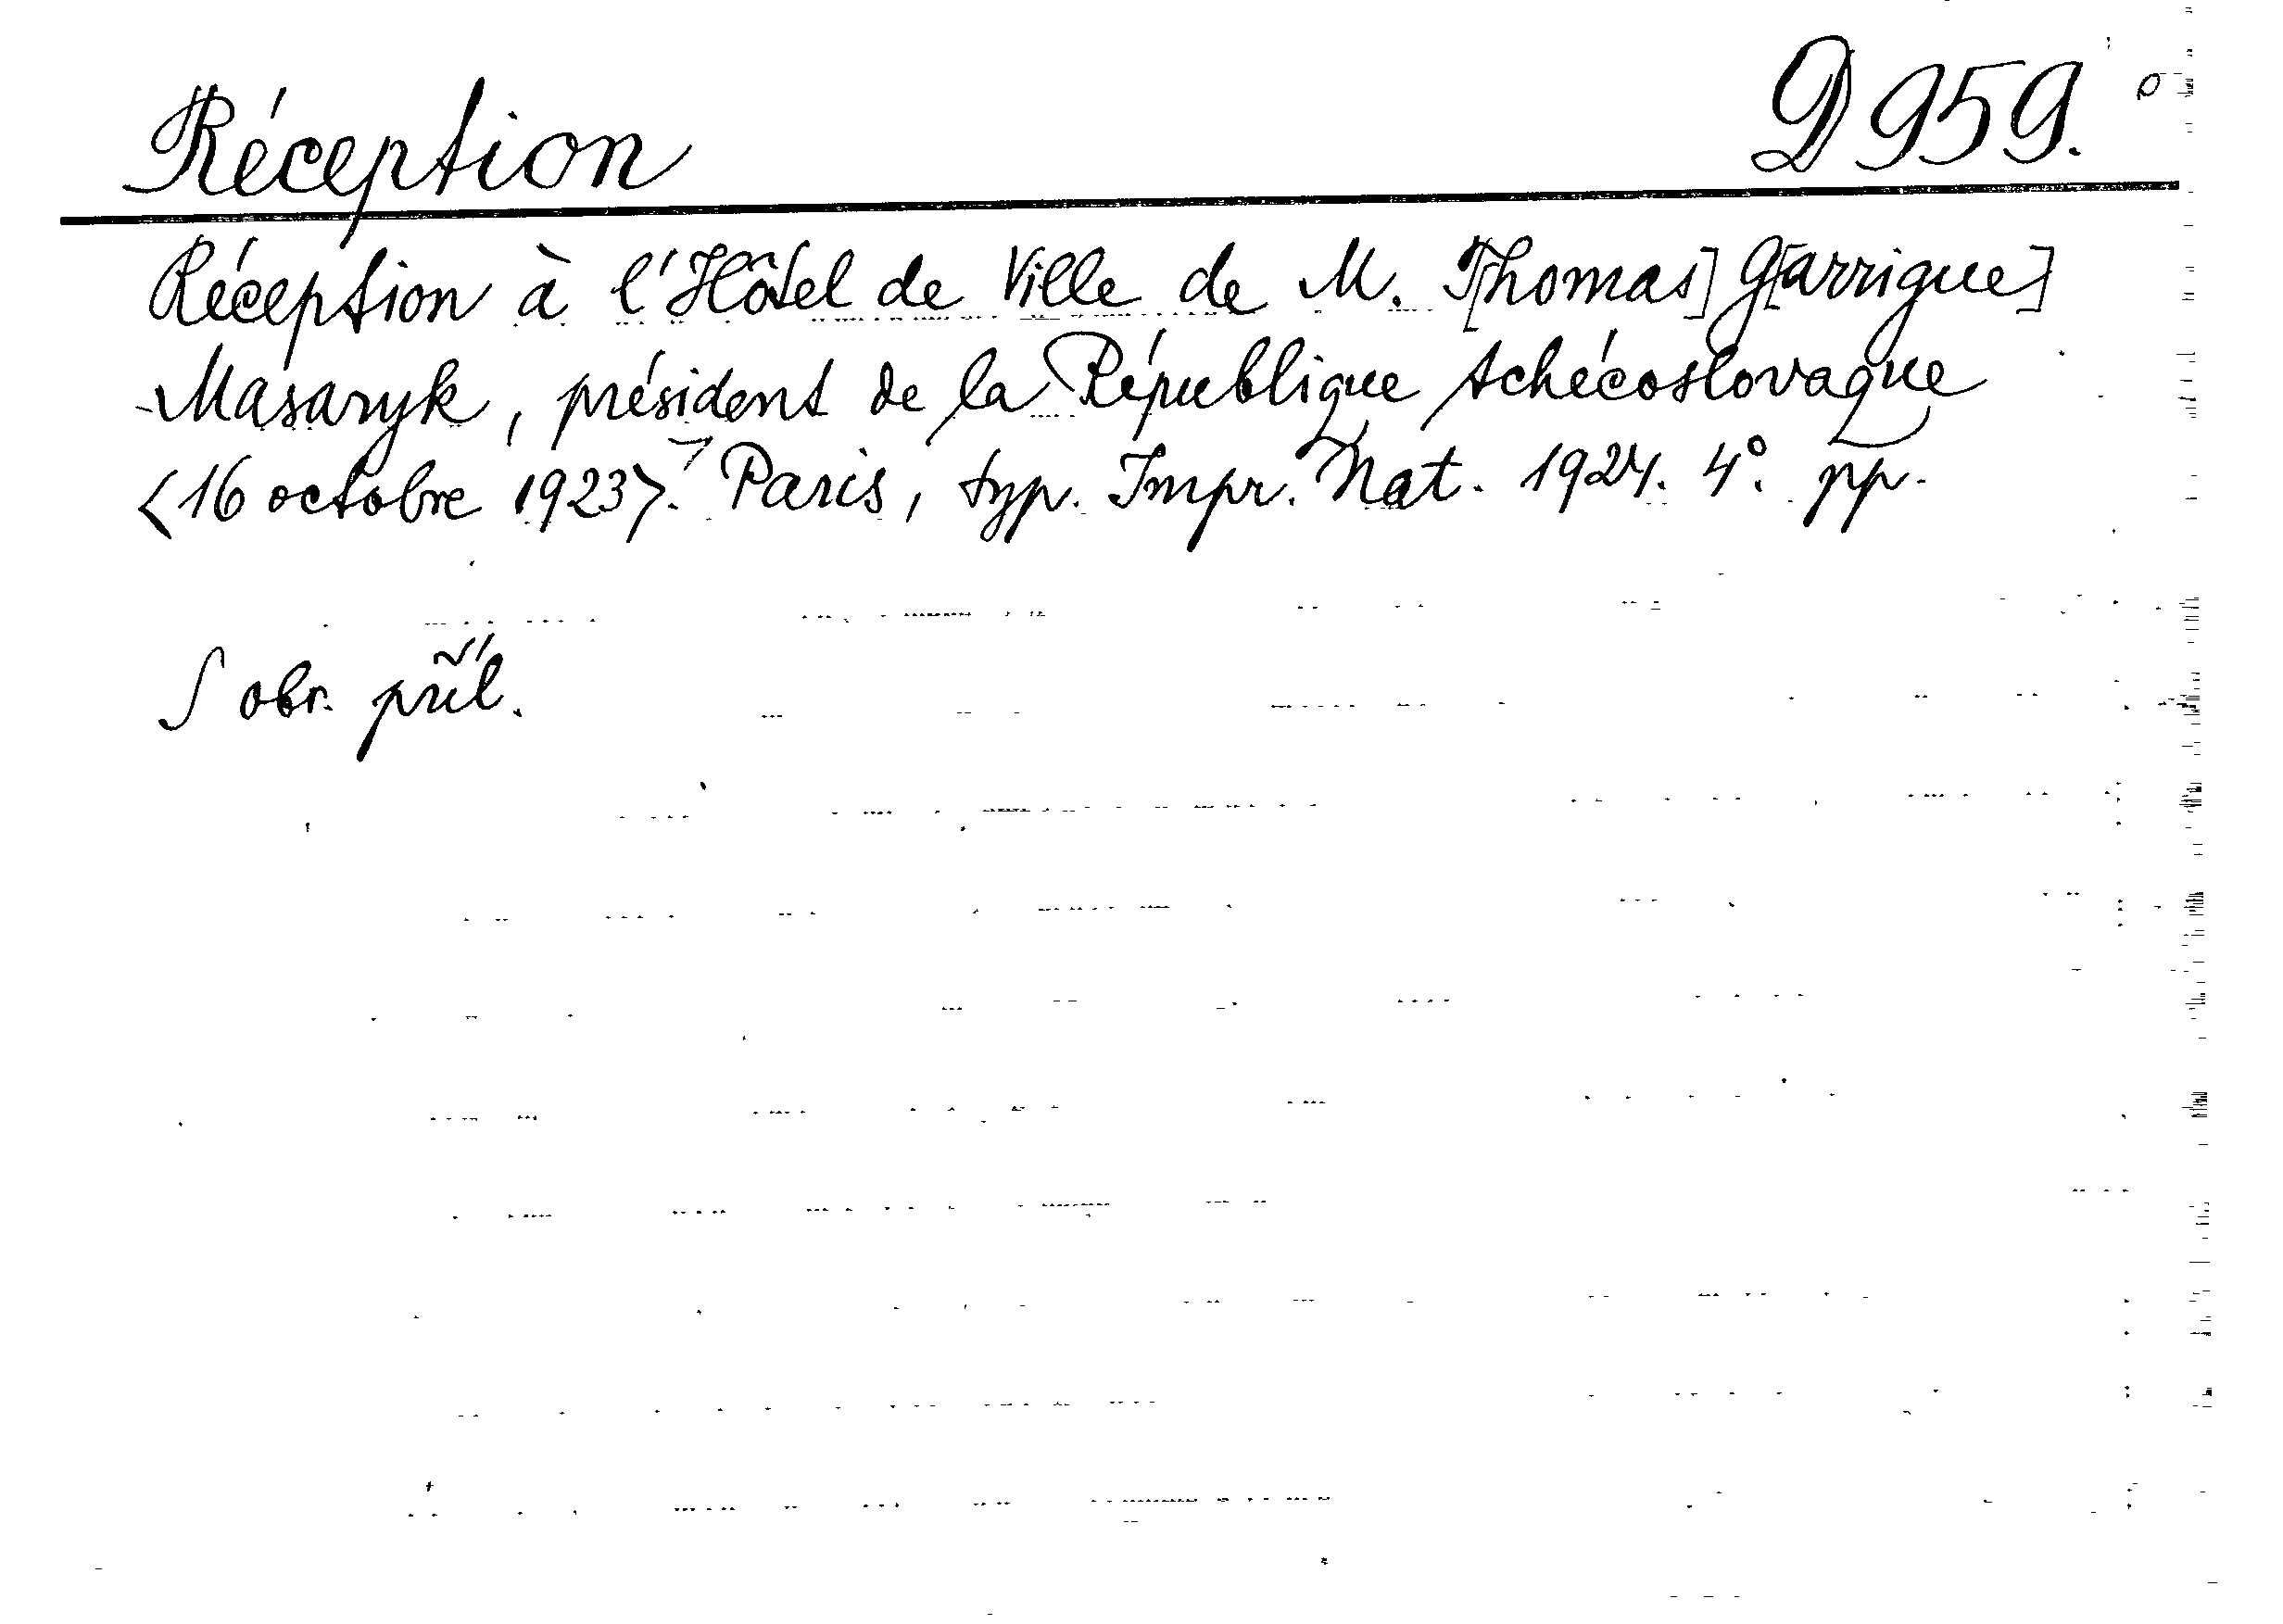 Réception D 959.
Réception à l'Hôtel de Ville de M. T[homas] G[arrigue]
Masaryk, président de la République tchécoslovaque
<16 octobre 1923>. Paris, typ. Impr. Nat. 1924. 4°. pp.
S obr. příl.